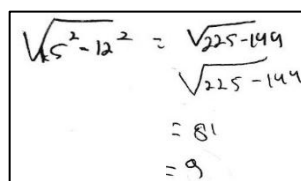 √15²-12² = √225-144
√225-144
= 81
= 9